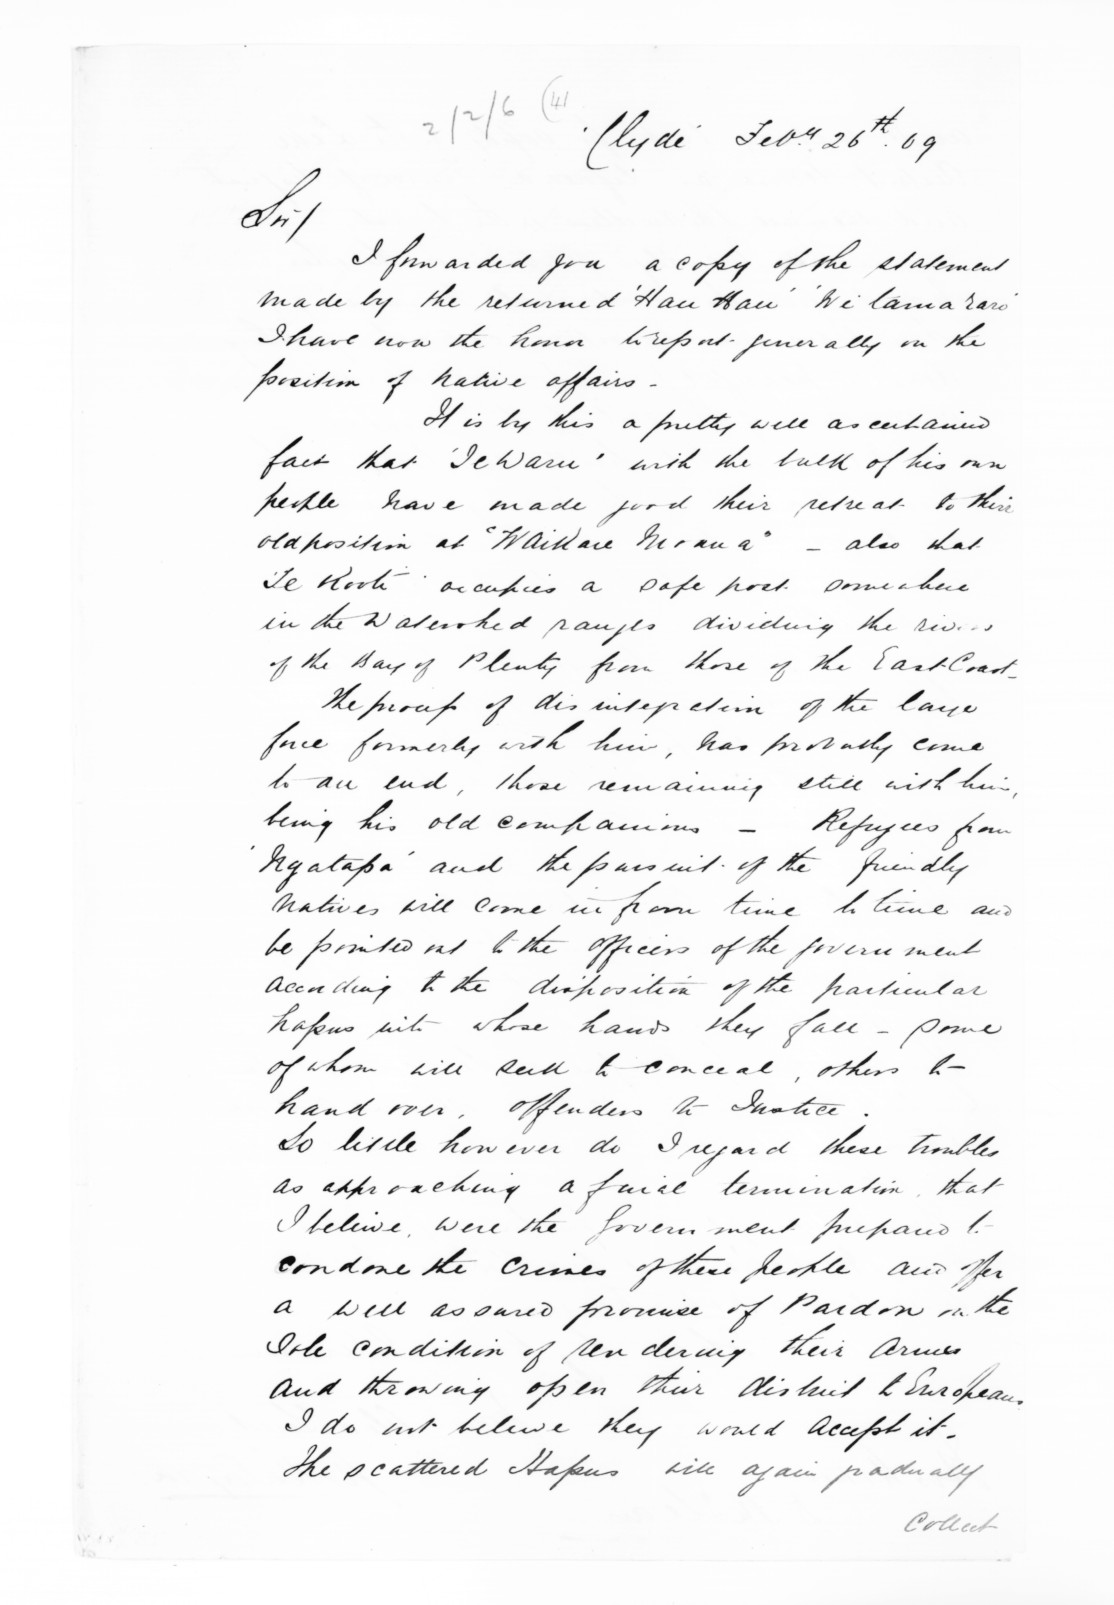 2/2/6 (4)
'Clyde' Feby. 26th. 69
Sir/
I forwarded you a copy of the statement
made by the returned 'Hau Hau' 'Wi Tamararo'
I have now the honor to report generally on the
position of Native affairs -
It is by this a pretty well ascertained
fact that 'Te Waru' with the bulk of his own
people have made good their retreat to their
old position at "WaiKare Moana" - also that
'Te Kooti' occupies a safe post somewhere
in the Watershed ranges dividing the rivers
of the Bay of Plenty from those of the East Coast -
The process of disintegration of the large
force formerly with him, has probably come
to an end, those remaining still with him,
being his old companions - Refugees from
'Ngatapa' and the pursuit of the friendly
Natives will come in from time to time and
be pointed out to the officers of the government
according to the disposition of the particular
hapus into whose hands they fall - some
of whom will seek to conceal, others to -
hand over, offenders to Justice.
So little however do I regard these troubles
as approaching a final termination, that
I believe, were the Government prepared to
condone the crimes of these people and offer
a well assured promise of Pardon on the
Sole condition of rendering their Arms
and throwing open their district to Europeans
I do not believe they would accept it.
The scattered Hapus will again gradually
Collect